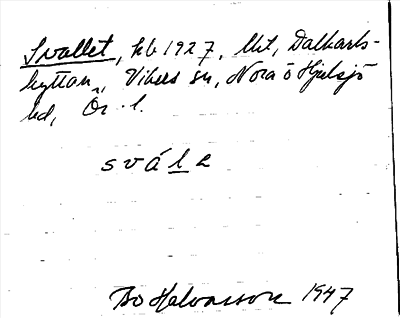 Svallet, kb 1927, Mit, Dalkarls-
hyttan, Vikers sn, Nora o Hjulsjö
bd, Ör. l.
svála
Bo Halvarsson 1947